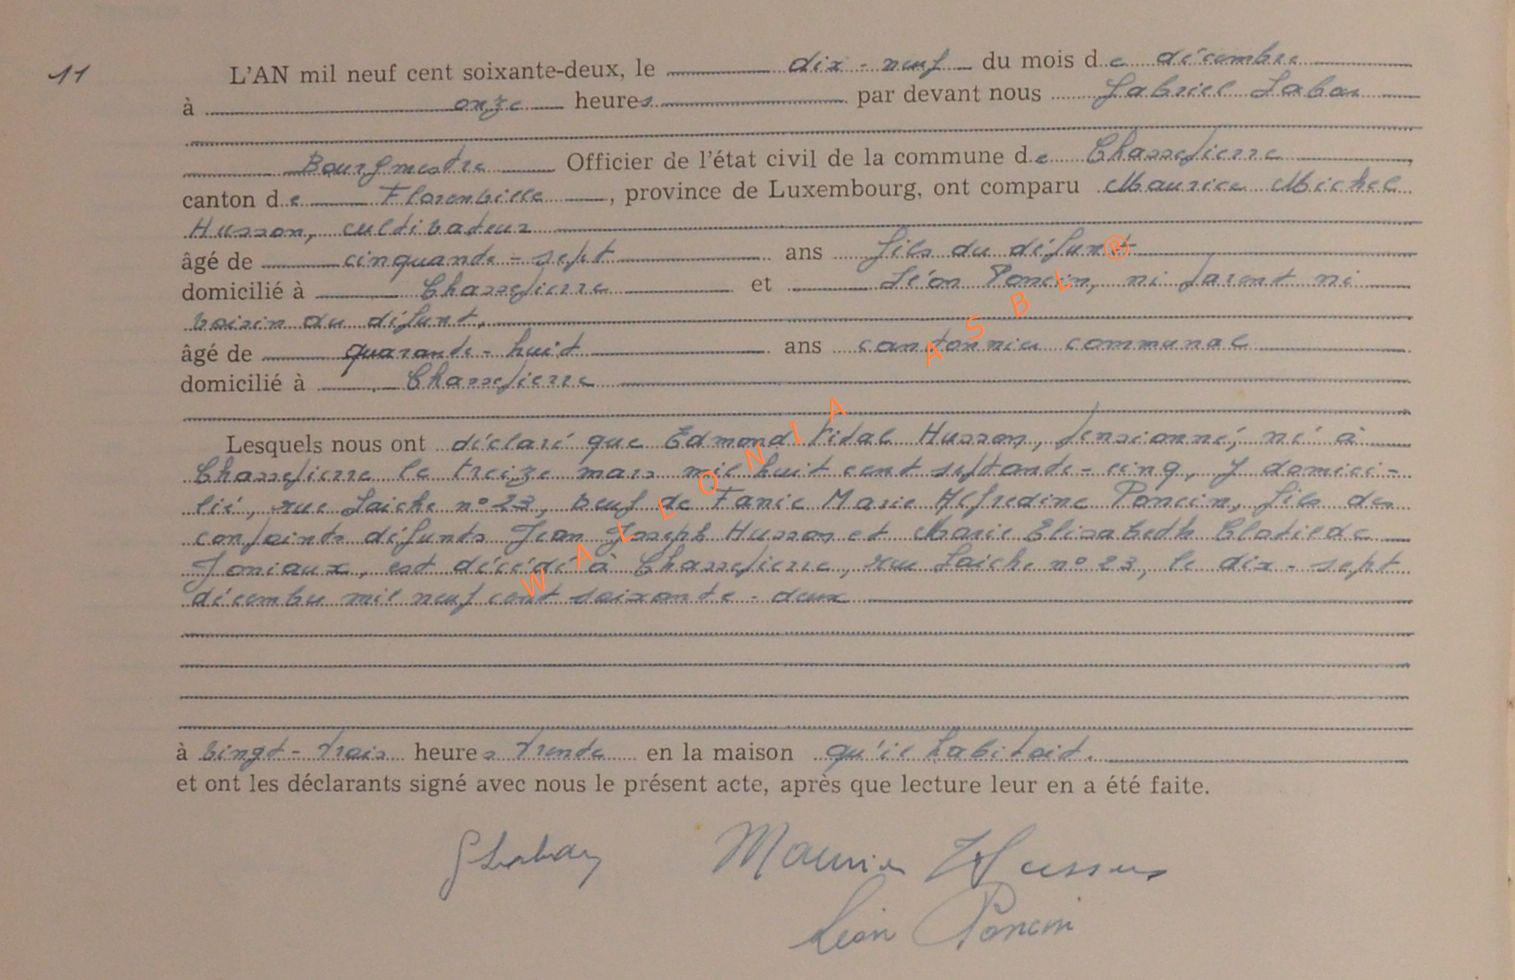 11
L'AN mil neuf cent soixante-deux, le dix-neuf du mois de décembre
à onze heures par devant nous Gabriel Labar
Bourgmestre Officier de l'état civil de la commune de Chassepierre
canton de Florenville, province de Luxembourg, ont comparu Maurice Michel
Husson, cultivateur
âgé de cinquante-sept ans fils du défunt
domicilié à Chassepierre et Léon Poncin, ni parent ni
voisin du défunt,
âgé de quarante-huit ans cantonnier communal
domicilié à Chassepierre
Lesquels nous ont déclaré que Edmond Vidal Husson, pensionné, né à
Chassepierre le treize mars mil huit cent septante-cinq, y domici-
lié, rue Laiche n° 23, veuf de Fanie Marie Alfredine Poncin, fils des
conjoints défunts Jean Joseph Husson et Marie Elisabeth Clotilde
Joniaux, est décédé à Chassepierre, rue Laiche n° 23, le dix-sept
décembre mil neuf cent soixante-deux
à vingt-trois heures trente en la maison qu'il habitait.
et ont les déclarants signé avec nous le présent acte, après que lecture leur en a été faite.
Maurice Husson
Léon Poncin
WALLONIA ASBL ®